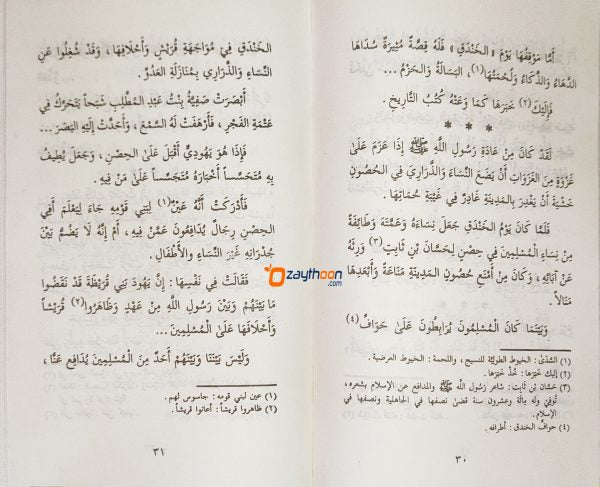 أَمَّا مَوْقِفُهَا يَوْمَ « الخَنْدَقِ » فَلَهُ قِصَّةٌ مُثِيرَةٌ سُدَاهَا
الدَّهَاءُ وَالذَّكَاءُ وَلُحْمَتُهَا(١) البَسَالَةُ وَالحَزْمُ ...
فَإِلَيْكَ (٢) خَبَرَهَا كَمَا وَعَتْهُ كُتُبُ التَّارِيخِ .
* * *
لَقَدْ كَانَ مِنْ عَادَةِ رَسُولِ اللَّهِ ﷺ إِذَا عَزَمَ عَلَىٰ
غَزْوَةٍ مِنَ الغَزَوَاتِ أَنْ يَضَعَ النِّسَاءَ وَالذَّرَارِيَ فِي الحُصُونِ
خَشْيَةَ أَنْ يَغْدِرَ بِالمَدِينَةِ غَادِرٌ فِي غَيْبَةِ حُمَاتِهَا .
فَلَمَّا كَانَ يَوْمُ الخَنْدَقِ جَعَلَ نِسَاءَهُ وَعَمَّتَهُ وَطَائِفَةً
مِنْ نِسَاءِ المُسْلِمِينَ فِي حِصْنٍ لِحَسَّانَ بْنِ ثَابِتٍ (٣) وَرِثَهُ
عَنْ آبَائِهِ ، وَكَانَ مِنْ أَمْنَعِ حُصُونِ المَدِينَةِ مَنَاعَةً وَأَبْعَدِهَا
مَنَالاً .
وَبَيْنَمَا كَانَ الْمُسْلِمُونَ يُرَابِطُونَ عَلَىٰ حَوَافِّ (٤)
(١) السَّدَىٰ : الخيوط الطوليَّة للنسيج ، واللحمة : الخيوط العرضية .
(٢) إليك خَبَرَهَا : خُذْ خَبَرَهَا .
(٣) حسَّان بْن ثَابت : شاعر رسول اللَّه ﷺ والمدافع عن الإسلام بشعره ،
تُوفِيَ وله مائة وعشرون سنة قضىٰ نصفها في الجاهلية ونصفها في
الإسلام .
(٤) حوافُّ الخندق : أطرافه .
٣٠
الخَنْدَقِ فِيْ مُوَاجَهَةِ قُرَيْشٍ وَأَحْلَافِهَا ، وَقَدْ شُغِلُوا عَنِ
النِّسَاءِ وَالذَّرَارِي بِمُنَازَلَةِ العَدُوِّ .
أَبْصَرَتْ صَفِيَّةُ بِنْتُ عَبْدِ المُطَّلِبِ شَبَحاً يَتَحَرَّكُ فِي
عَتْمَةِ الفَجْرِ ، فَأَرْهَفَتْ لَهُ السَّمْعَ ، وَأَحَدَّتْ إِلَيْهِ البَصَرَ ...
فَإِذَا هُوَ يَهُودِيٌّ أَقْبَلَ عَلَىٰ الحِصْنِ ، وَجَعَلَ يُطِيفُ
بِهِ مُتَحَسِّساً أَخْبَارَهُ مُتَجَسِّساً عَلَىٰ مَنْ فِيهِ .
فَأَدْرَكَتْ أَنَّهُ عَيْنٌ(١) لِبَنِي قَوْمِهِ جَاءَ لِيَعْلَمَ أَفِي
الحِصْنِ رِجَالٌ يُدَافِعُونَ عَمَّنْ فِيهِ ، أَمْ إِنَّهُ لَا يَضُمُّ بَيْنَ
جُدْرَانِهِ غَيْرَ النِّسَاءِ وَالأَطْفَالِ .
فَقَالَتْ فِي نَفْسِهَا : إِنَّ يَهُودَ بَنِي قُرَيْظَةَ قَدْ نَقَضُوا
مَا بَيْنَهُمْ وَبَيْنَ رَسُولِ اللَّهِ مِنْ عَهْدٍ وَظَاهَرُوا(٢) قُرَيْشاً
وَأَحْلَافَهَا عَلَىٰ الْمُسْلِمِينَ ...
وَلَيْسَ بَيْنَنَا وَبَيْنَهُمْ أَحَدٌ مِنَ الْمُسْلِمِينَ يُدَافِعُ عَنَّا ،
(١) عين لبني قومه : جاسوس لهم .
(٢) ظاهروا قريشاً : أعانوا قريشاً .
٣١
Ozaythoon
.com